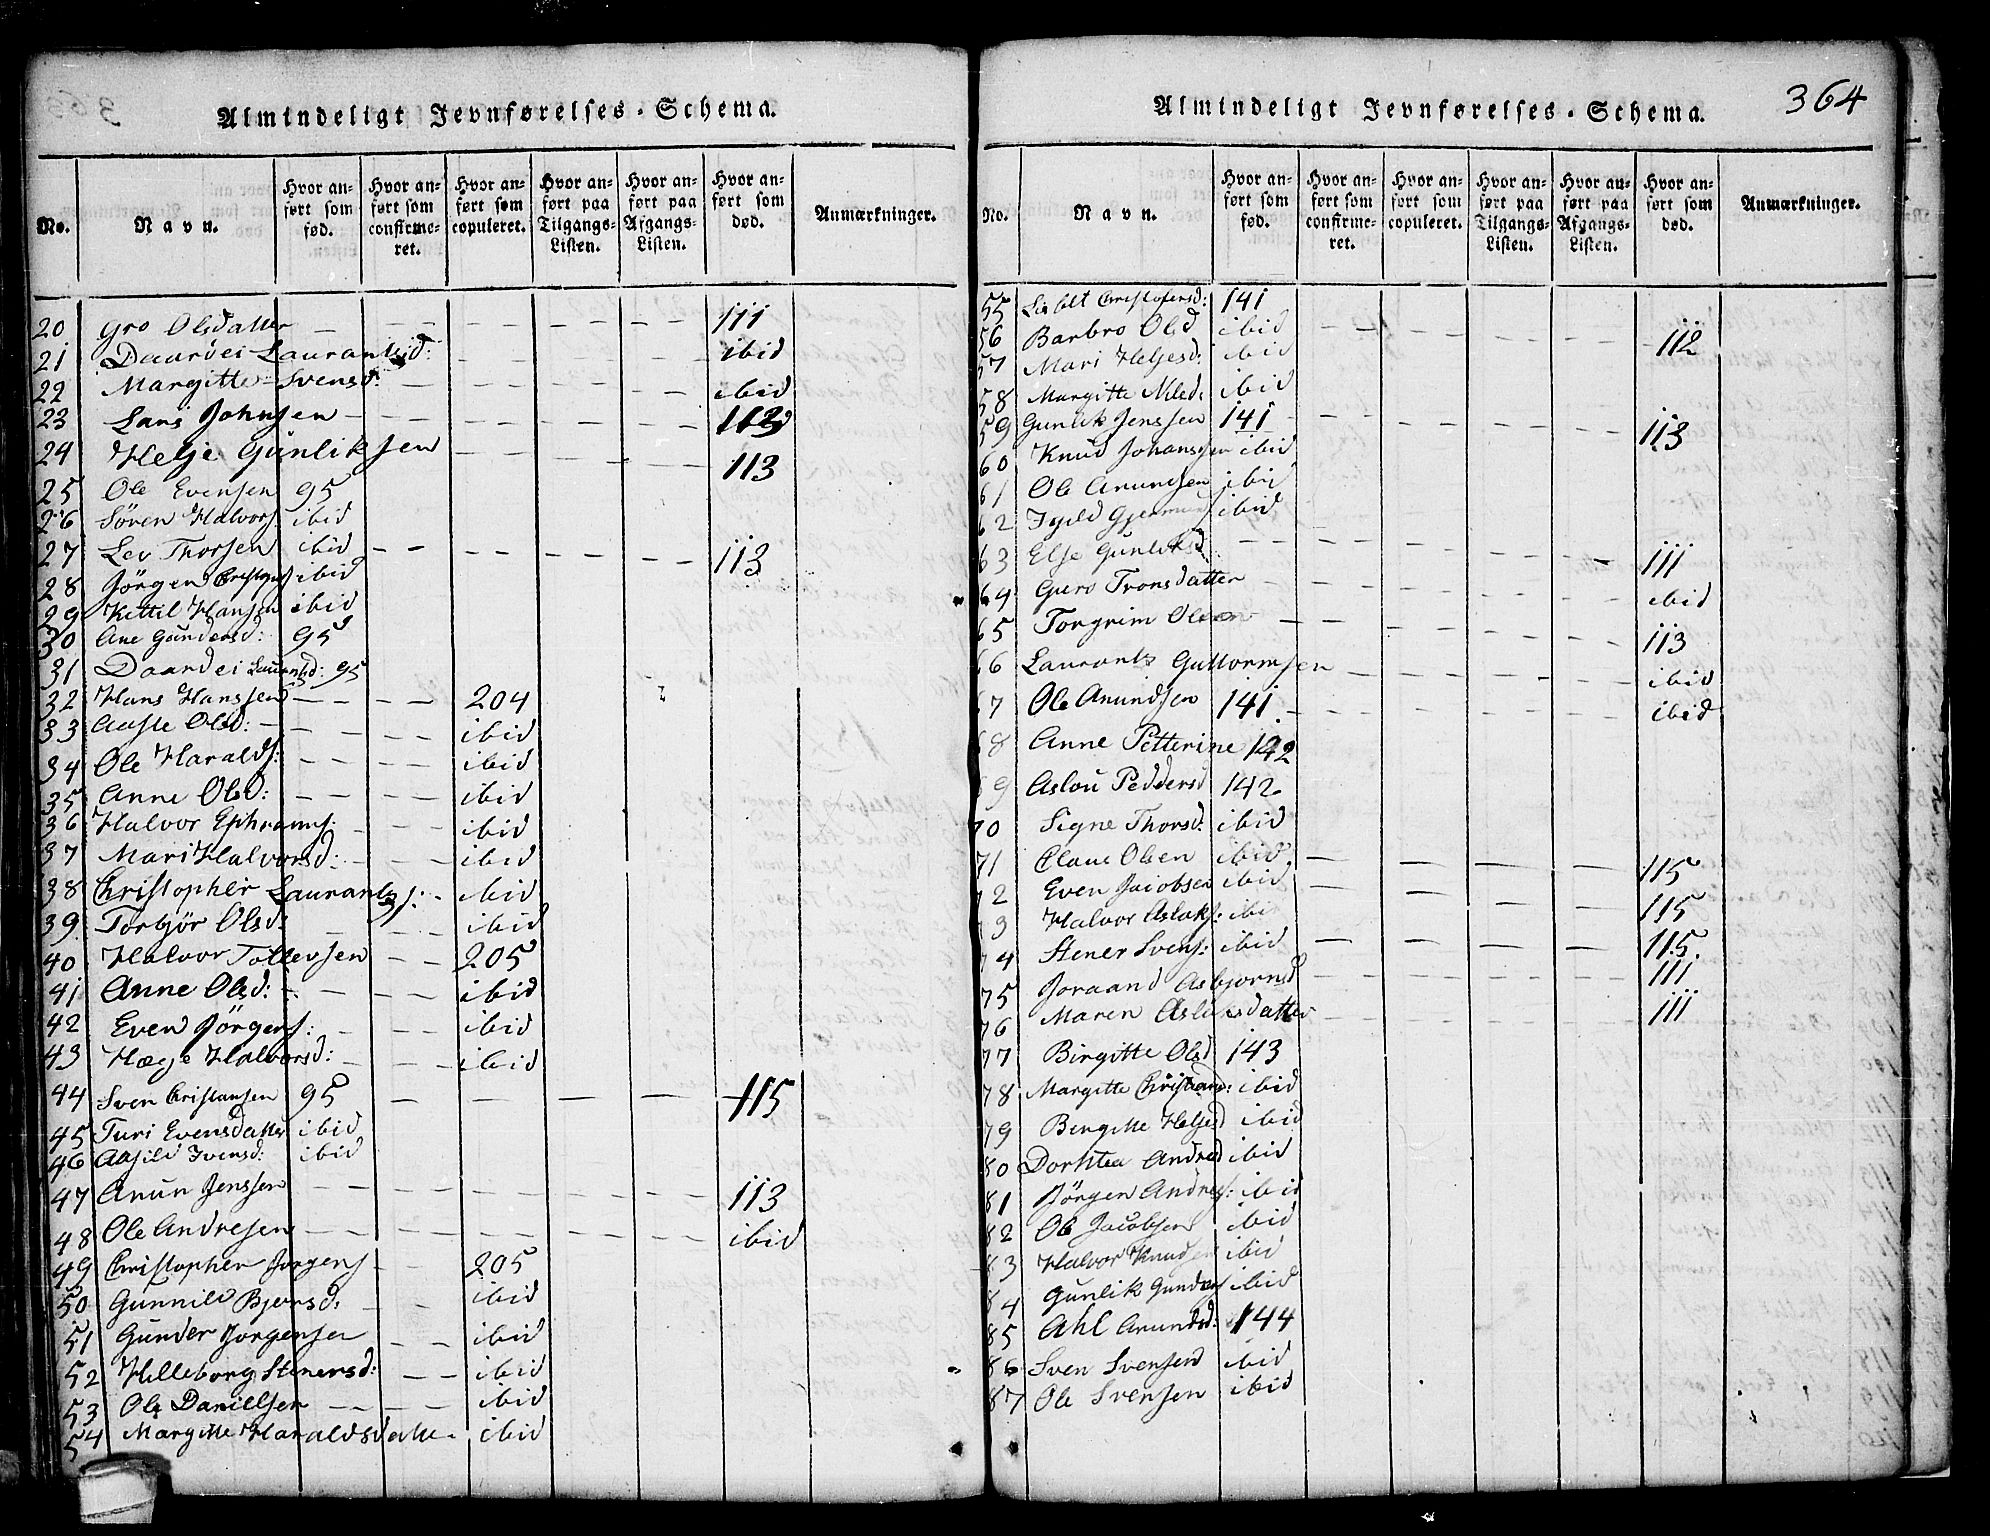 Almindeligt Jevnførelses-Schema.
No. Navn. Hvor anført som fød. Hvor anført som confirmeret. Hvor anført som copuleret. Hvor anført paa Tilgangs-Listen. Hvor anført paa Afgangs-Listen. Hvor anført som død. Anmærkninger.
20 Gro Olsdatter – – – – – – 111
21 Daardei Laurantsd: – – – – ibid
22 Margitte Svensd: – – – – – ibid
23 Lars Johnsen – – – – –
24 Helje Gunliksen – – – – 113
25 Ole Evensen 95
26 Sören Halvors ibid
27 Lev Thorsen ibid – – – – – – 113
28 Jörgen ibid
29 Kittil Hansen ibid
30 Ane Gundersd: 95
31 Daardei Laurantsd: 95
32 Hans Hanssen – – – – 204
33 Aaste Olsd: – – – – ibid
34 Ole Haralds: – – – – ibid
35 Anne Olsd: – – – – ibid
36 Halvor Ephraims: – – – ibid
37 Mari Halvorsd: – – – ibid
38 Christopher Laurantzs: – ibid
39 Torbjör Olsd: – – – ibid
40 Halvor Tollevsen – – 205
41 Anne Olsd: – – – – ibid
42 Even Jörgens: – – – ibid
43 Hæge Halvorsd: – – – ibid
44 Sven Christansen 95 – – – – – 115
45 Turi Evensdatter ibid
46 Aasild Ivensd: ibid
47 Anun Jenssen – – – – – – 113
48 Ole Andresen – – – – – – ibid
49 Christopher Jorgens – – 205
50 Gunnild Bjornsd: – – ibid
51 Gunder Jorgensen – – ibid
52 Helleborg Stenersd: – – ibid
53 Ole Daniellsen – – – – ibid
54 Margitte Haraldsdatter – ibid
364
Almindeligt Jevnførelses-Schema.
No. Navn. Hvor anført som fød. Hvor anført som confirmeret. Hvor anført som copuleret. Hvor anført paa Tilgangs-Listen. Hvor anført paa Afgangs-Listen. Hvor anført som død. Anmærkninger.
55 Lisbet Christofersd: 141
56 Barbro Olsd ibid – – – – – 112
57 Mari Heljesd: ibid
58 Margitte Nilsd: ibid
59 Gunlik Jenssen 141 – – – – – – 113
60 Knud Johansen ibid
61 Ole Anundsen ibid
62 ibid
63 Else Gunliksd – – – – – – 111
64 Guro Tronsdatter – – – – – ibid
65 Torgrim Olsen – – – – – – 113
66 Laurants Guttormsen – – – – – ibid
67 Ole Anundsen 141 – – – – – – ibid
68 Anne Petterine 142
69 Aslou Peddersd 142
70 Signe Thorsd: ibid
71 Claus Olsen ibid – – – – 115
72 Even Jacobsen ibid – – – – 115
73 Halvor Aslaks: ibid
74 Stener Svens: ibid – – – – 115.
75 Joraand Asbjornsd – – – – – 111
76 Maren Aslaksdatter – – – – – 111
77 Birgitte Olsd 143
78 Margitte Christiansd: ibid
79 Birgitte Heljesd ibid
80 Dorhtea Andresd ibid
81 Jörgen Andres: ibid
82 Ole Jacobsen ibid
83 Halvor Knudsen ibid
84 Gunlik Gunders ibid
85 Ahl Anundsd: 144
86 Sven Svensen ibid
87 Ole Svensen ibid